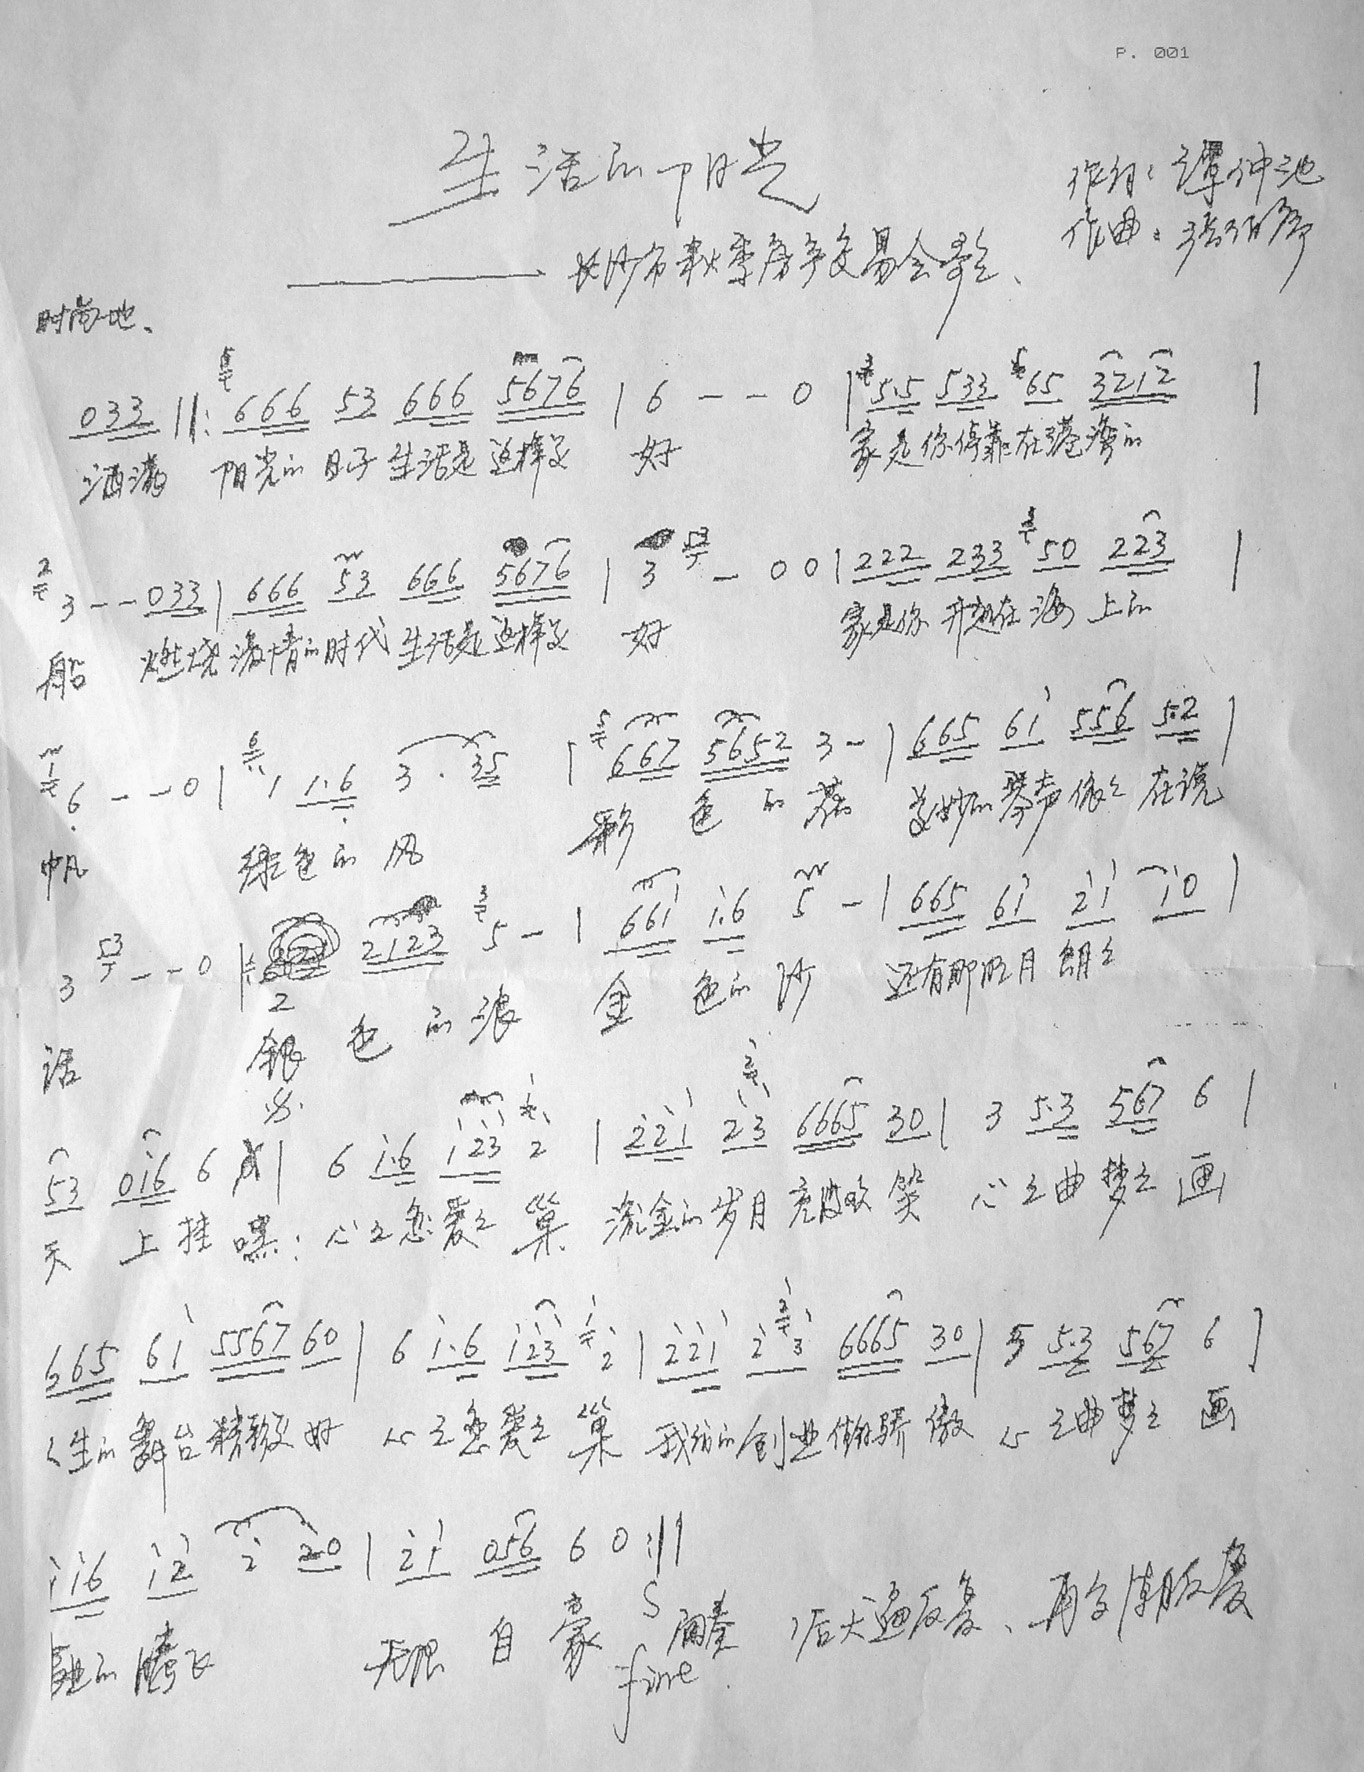 P. 001
生活的阳光
作词：谭仲池
作曲：
——— 长沙市秋季房产交易会会歌、
时尚地、
033 ||: 666 53 666 5676 | 6 - - 0 | 5·5 533 65 3212 |
洒满 阳光的日子 生活是这样美 好 家是你停靠在港湾的
3 - - 033 | 666 53 666 5676 | 3 - 0 0 | 222 233 50 223 |
船 燃烧激情的时代 生活是这样美 好 家是你 在海上的
6 - - 0 | 1 1·6 3 · 35 | 667 5652 3 - | 665 61 556 5·2 |
帆 绿色的风 彩色的 美妙的琴声 在说
3 - - 0 | 2 2123 5 - | 661 1·6 5 - | 665 61 21 10 |
话 银色的浪 金色的沙 还有那明月朗々
53 016 6 | 6 1·6 123 2 | 221 23 6665 30 | 3 5·3 567 6 |
天上挂 嘿： 心之恋爱之巢 流金的岁月充满欢笑 心之曲梦之画
665 61 5567 60 | 6 1·6 123 2 | 221 2 3 6665 30 | 5 5·3 567 6 |
人生的舞台精彩美好 心之恋爱之巢 我们的创业 骄傲 心之曲梦之画
116 12 2 20 | 21 056 6 0 :||
的腾飞 无限自豪 间奏 后大遍反复、再 反复
fine